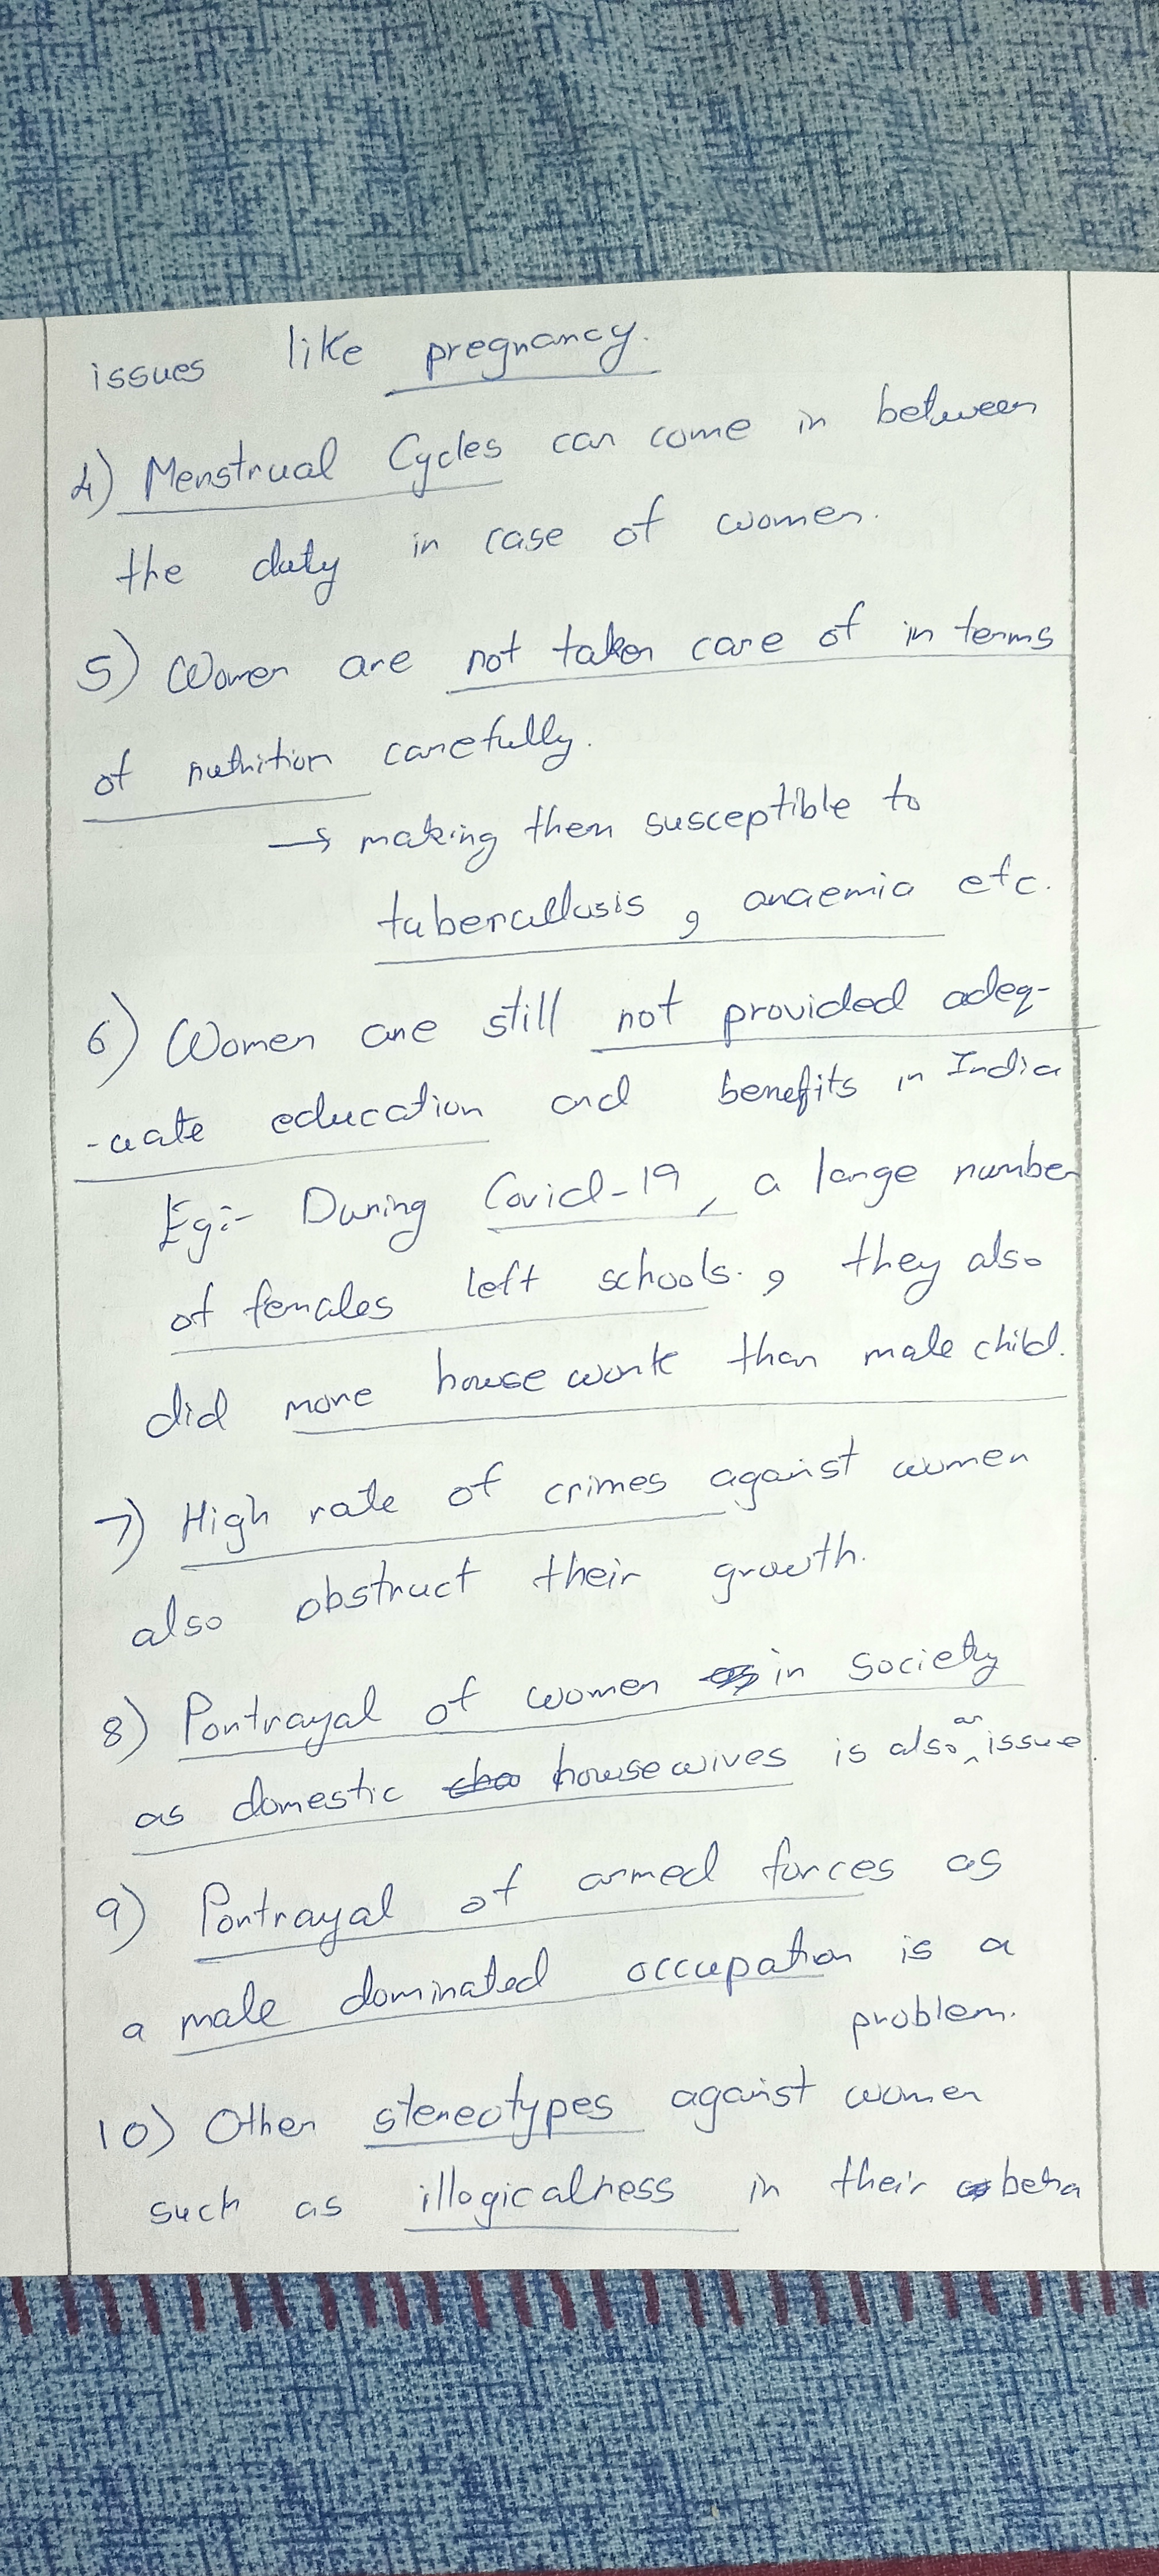 issues like pregnancy.
4) Menstrual Cycles can come in between
the duty in case of women.
5) Women are not taken care of in terms
of nutrition carefully.
→ making them susceptible to
tubercullosis, anaemia etc.
6) Women are still not provided adeq-
-uate education and benefits in India
Eg:- During Covid-19, a large number
of females left schools., they also
did more house work than male child.
7) High rate of crimes against women
also obstruct their growth.
8) Portrayal of women in society
as domestic housewives is also an issue.
9) Portrayal of armed forces as
a male dominated occupation is a
problem.
10) Other stereotypes against women
such as illogicalness in their beha